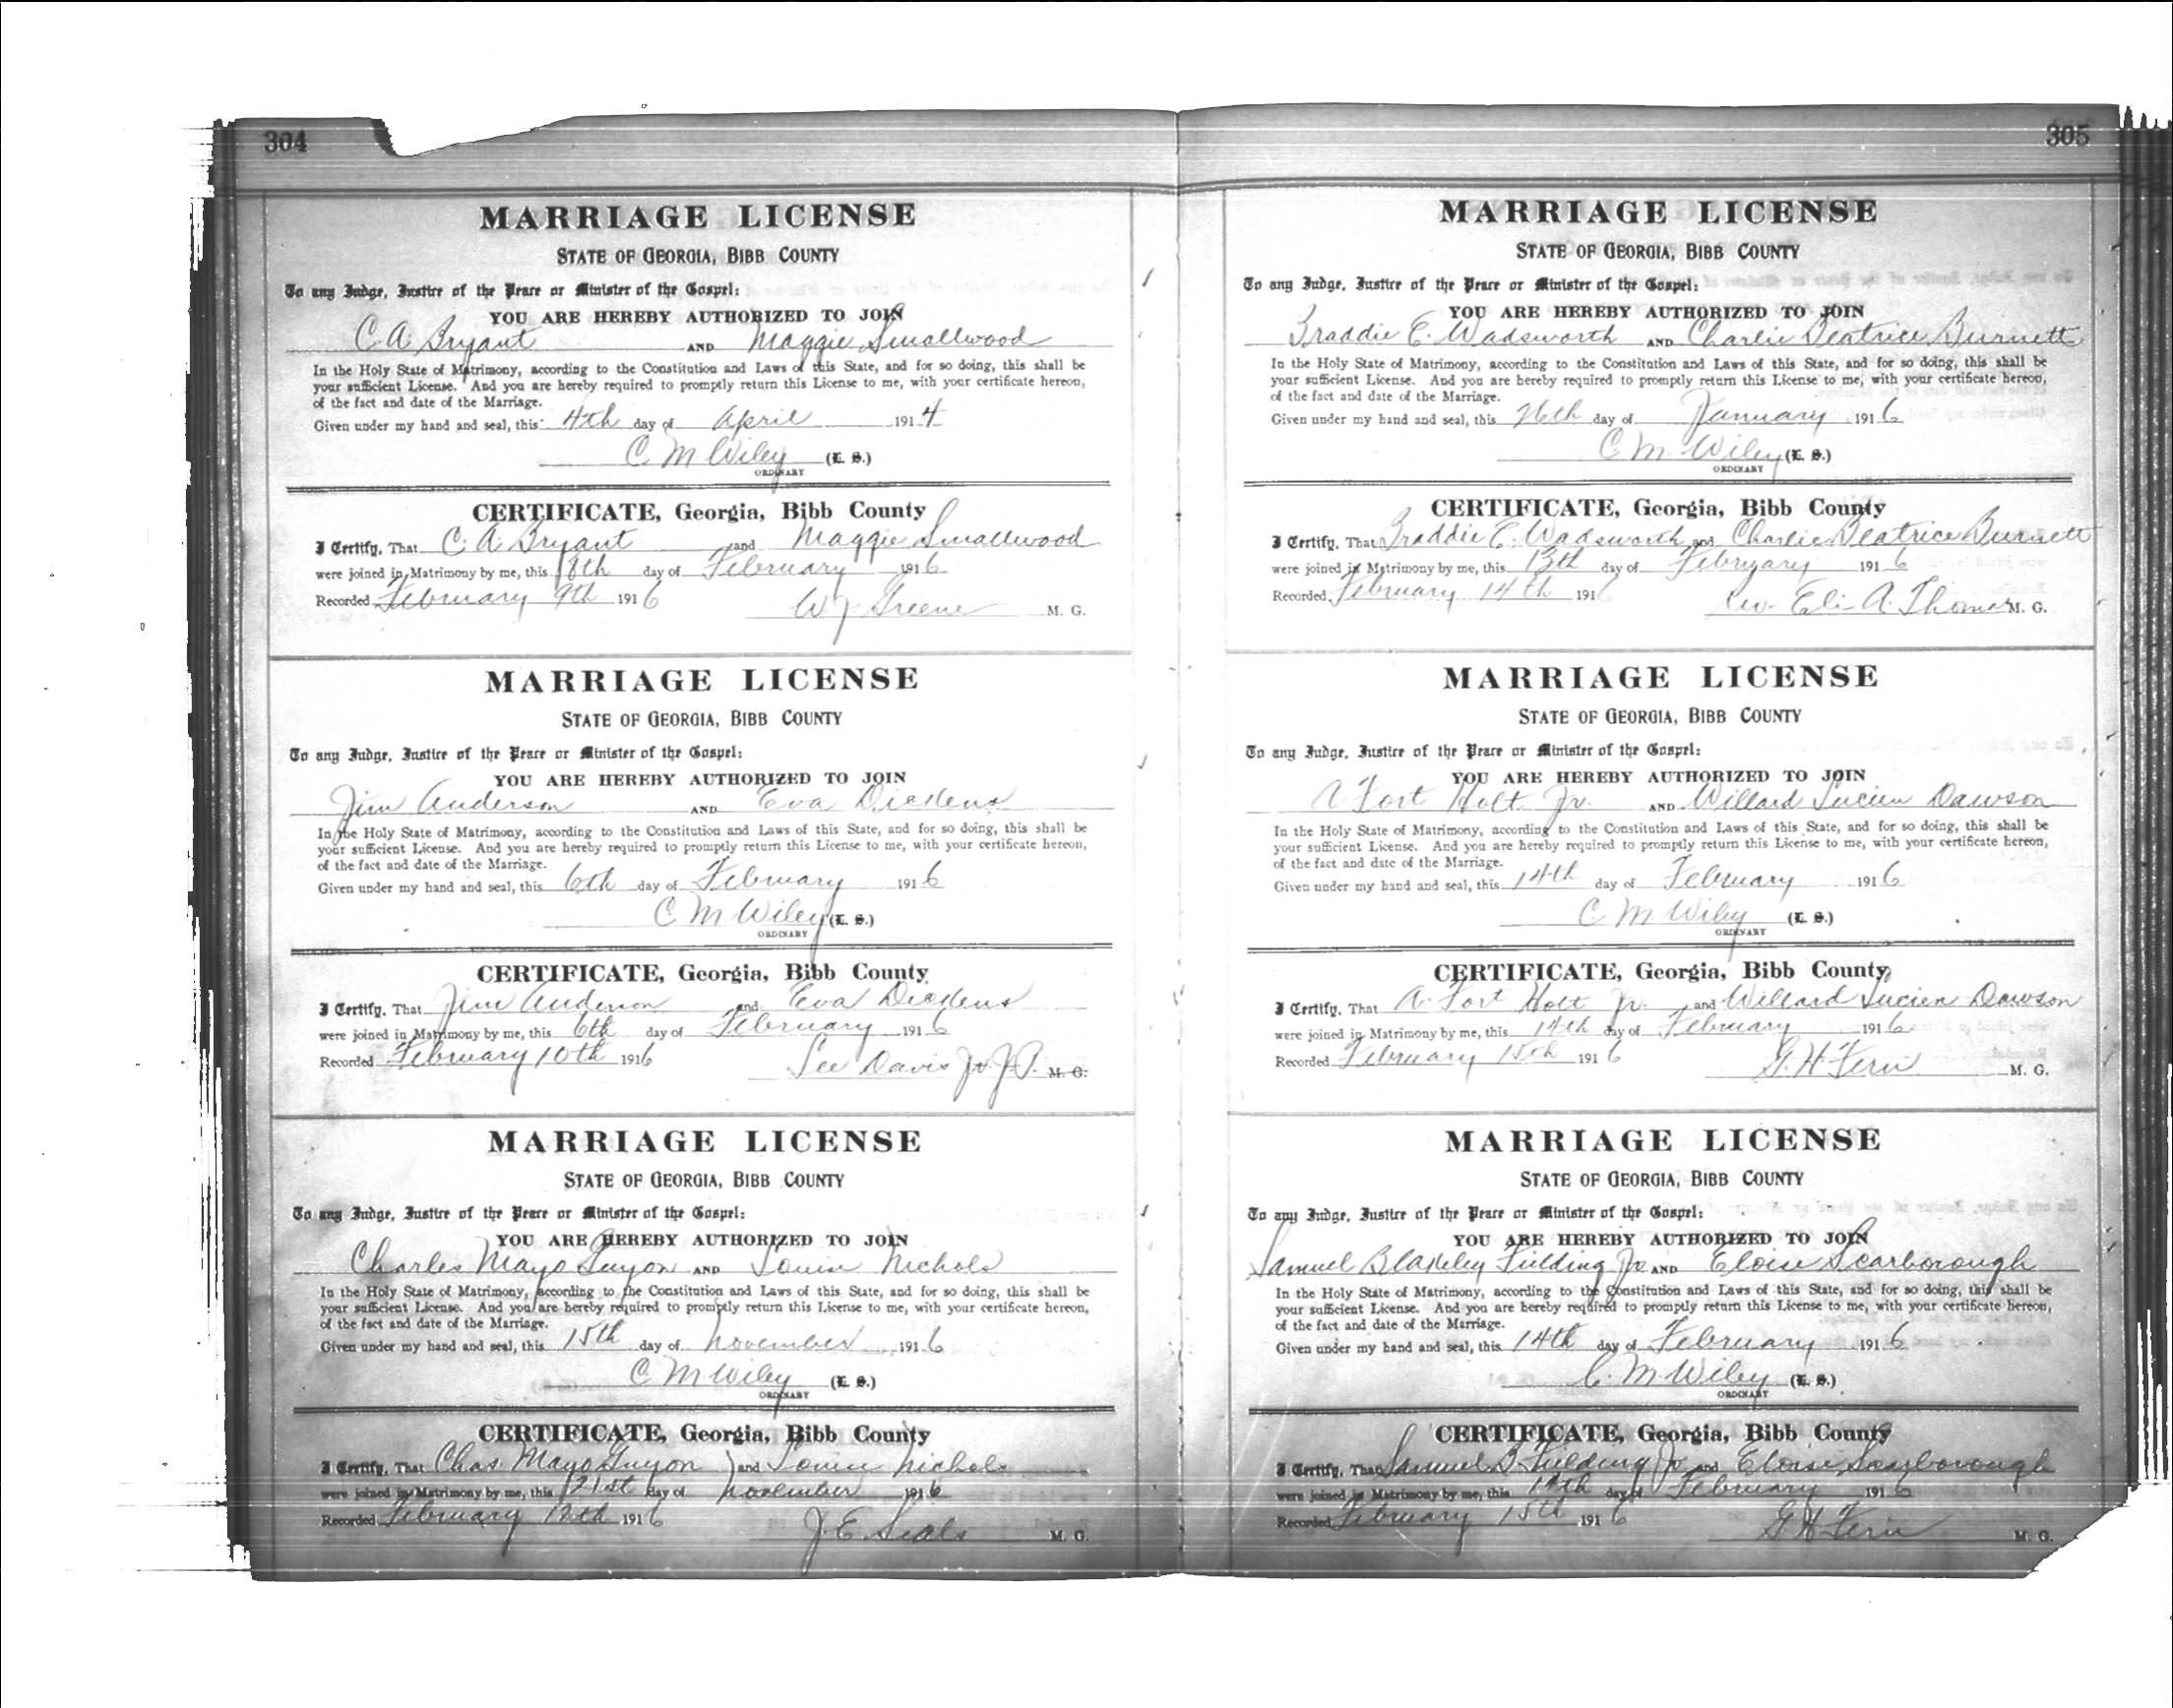 304
MARRIAGE LICENSE
STATE OF GEORGIA, BIBB COUNTY
To any Judge, Justice of the Peace or Minister of the Gospel:
YOU ARE HEREBY AUTHORIZED TO JOIN
C. A. Bryant AND Maggie Smallwood
In the Holy State of Matrimony, according to the Constitution and Laws of this State, and for so doing, this shall be
your sufficient License. And you are hereby required to promptly return this License to me, with your certificate hereon,
of the fact and date of the Marriage.
Given under my hand and seal, this 4th day of April 1914
C M Wiley (L. S.)
ORDINARY
CERTIFICATE, Georgia, Bibb County
I Certify, That C. A. Bryant and Maggie Smallwood
were joined in Matrimony by me, this 8th day of February 1916
Recorded February 9th 1916 W J Greene M. G.
MARRIAGE LICENSE
STATE OF GEORGIA, BIBB COUNTY
To any Judge, Justice of the Peace or Minister of the Gospel:
YOU ARE HEREBY AUTHORIZED TO JOIN
Jim Anderson AND Eva Dickens
In the Holy State of Matrimony, according to the Constitution and Laws of this State, and for so doing, this shall be
your sufficient License. And you are hereby required to promptly return this License to me, with your certificate hereon,
of the fact and date of the Marriage.
Given under my hand and seal, this 6th day of February 1916
C M Wiley (L. S.)
ORDINARY
CERTIFICATE, Georgia, Bibb County
I Certify, That Jim Anderson and Eva Dickens
were joined in Matrimony by me, this 6th day of February 1916
Recorded February 10th 1916 Lee Davis Jr J.P. M. G.
MARRIAGE LICENSE
STATE OF GEORGIA, BIBB COUNTY
To any Judge, Justice of the Peace or Minister of the Gospel:
YOU ARE HEREBY AUTHORIZED TO JOIN
Charles Mayo Guyon AND Louise Nichols
In the Holy State of Matrimony, according to the Constitution and Laws of this State, and for so doing, this shall be
your sufficient License. And you are hereby required to promptly return this License to me, with your certificate hereon,
of the fact and date of the Marriage.
Given under my hand and seal, this 15th day of November 1916
C M Wiley (L. S.)
ORDINARY
CERTIFICATE, Georgia, Bibb County
I Certify, That Chas. Mayo Guyon and Louise Nichols
were joined in Matrimony by me, this 21st day of November 1916
Recorded February 12th 1916 J. E. Seals M. G.
305
MARRIAGE LICENSE
STATE OF GEORGIA, BIBB COUNTY
To any Judge, Justice of the Peace or Minister of the Gospel:
YOU ARE HEREBY AUTHORIZED TO JOIN
Braddie E. Wadsworth AND Charlie Beatrice Burnett
In the Holy State of Matrimony, according to the Constitution and Laws of this State, and for so doing, this shall be
your sufficient License. And you are hereby required to promptly return this License to me, with your certificate hereon,
of the fact and date of the Marriage.
Given under my hand and seal, this 26th day of January 1916
C. M. Wiley (L. S.)
ORDINARY
CERTIFICATE, Georgia, Bibb County
I Certify, That Braddie E. Wadsworth and Charlie Beatrice Burnett
were joined in Matrimony by me, this 13th day of February 1916
Recorded February 14th 191 Rev. Eli A. Thomas M. G.
MARRIAGE LICENSE
STATE OF GEORGIA, BIBB COUNTY
To any Judge, Justice of the Peace or Minister of the Gospel:
YOU ARE HEREBY AUTHORIZED TO JOIN
A Fort Holt Jr. AND Willard Lucien Dawson
In the Holy State of Matrimony, according to the Constitution and Laws of this State, and for so doing, this shall be
your sufficient License. And you are hereby required to promptly return this License to me, with your certificate hereon,
of the fact and date of the Marriage.
Given under my hand and seal, this 14th day of February 1916
C M Wiley (L. S.)
ORDINARY
CERTIFICATE, Georgia, Bibb County
I Certify, That A. Fort Holt Jr. and Willard Lucien Dawson
were joined in Matrimony by me, this 14th day of February 1916
Recorded February 15th 1916 G. H. Fern M. G.
MARRIAGE LICENSE
STATE OF GEORGIA, BIBB COUNTY
To any Judge, Justice of the Peace or Minister of the Gospel:
YOU ARE HEREBY AUTHORIZED TO JOIN
Samuel Blakeley Fielding Jr. AND Eloise Scarborough
In the Holy State of Matrimony, according to the Constitution and Laws of this State, and for so doing, this shall be
your sufficient License. And you are hereby required to promptly return this License to me, with your certificate hereon,
of the fact and date of the Marriage.
Given under my hand and seal, this 14th day of February 1916
C. M. Wiley (L. S.)
ORDINARY
CERTIFICATE, Georgia, Bibb County
I Certify, That Samuel B Fielding Jr. and Eloise Scarborough
were joined in Matrimony by me, this 14th day of February 1916
Recorded February 15th 1916 G H Fern M. G.